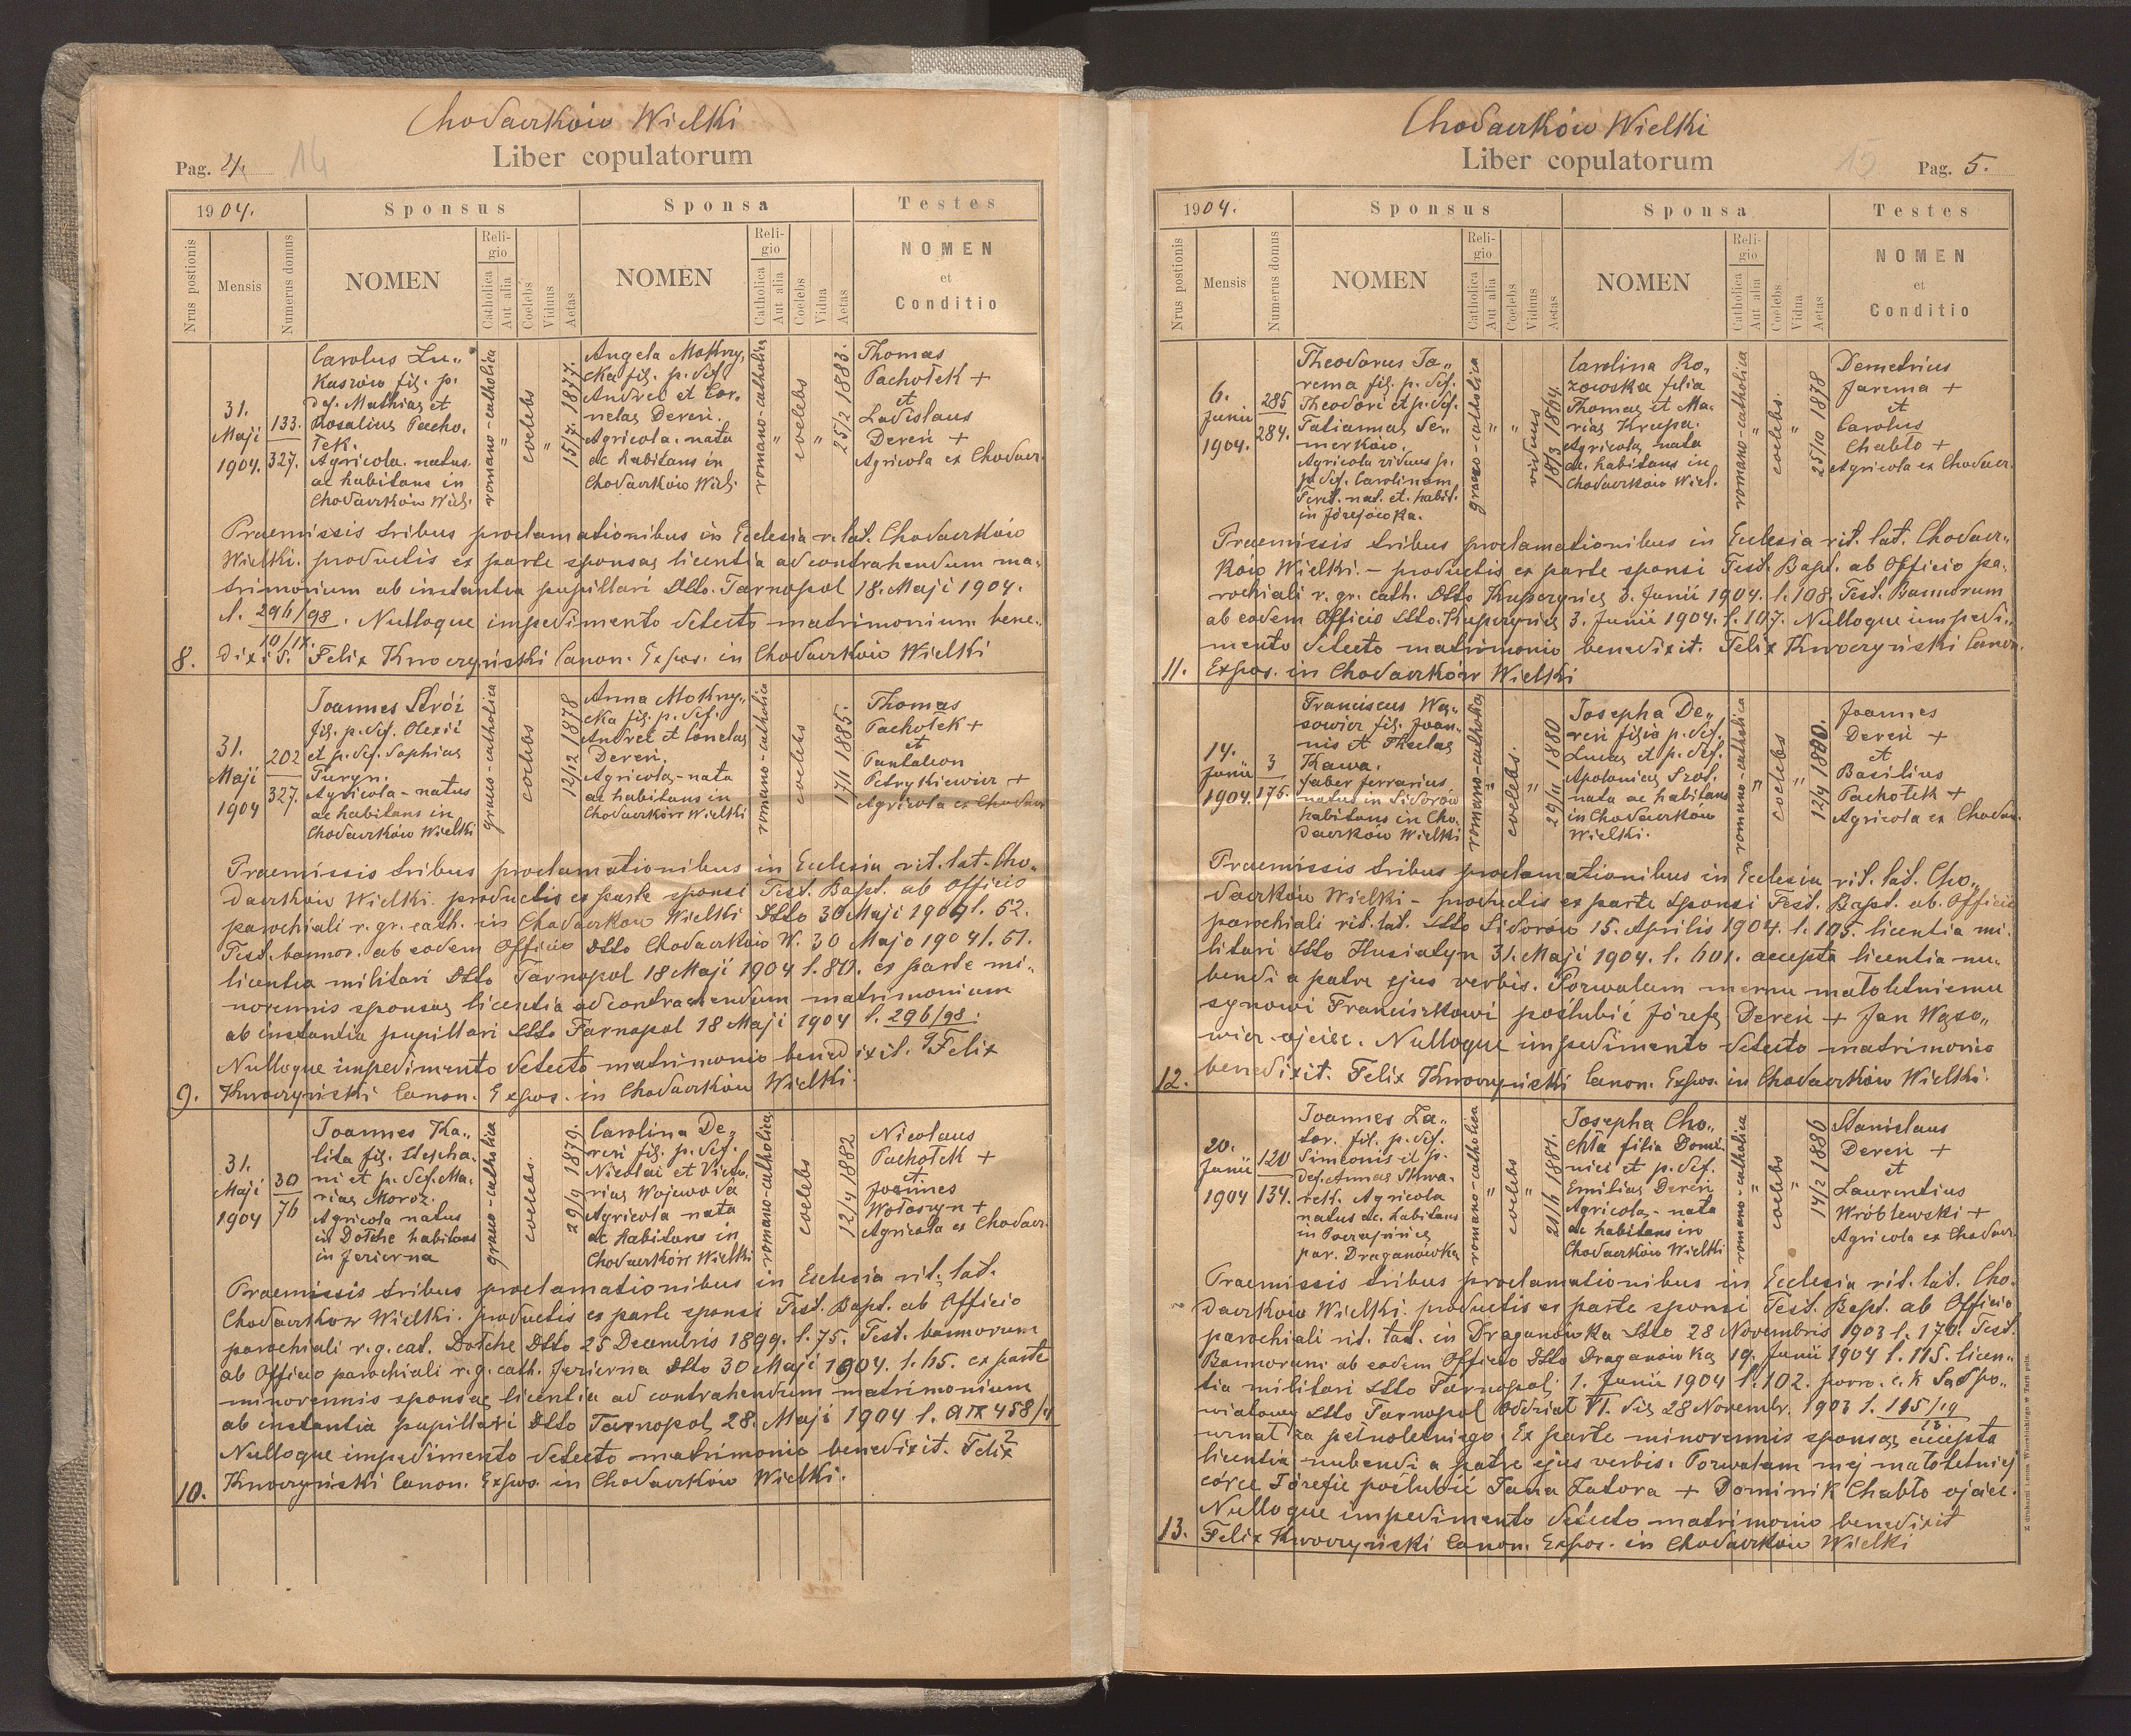 Chodaczków Wielki
Liber copulatorum
Pag. 4. 14
1904.
Sponsus
Sponsa
Testes
Nrus postionis
Mensis
Numerus domus
NOMEN
Religio
Catholica
Aut alia
Coelebs
Viduus
Aetas
NOMEN
Religio
Catholica
Aut alia
Coelebs
Vidua
Aetas
NOMEN
et
Conditio
31.
Maji
1904.
133.
327.
Carolus Łu„
kaszów fil. p.
def. Mathiae et
Rosaliae Pacho„
łek.
Agricola. natus
ac habitans in
Chodaczków Wiel.
romano-catholica
„
coelebs
„
15/7. 1877.
Angela Mokrzy„
cka fil. p. def.
Andreae et Cor„
neliae Dereń.
Agricola. nata
ac habitans in
Chodaczków Wiel.
romano-catholica
„
coelebs
„
25/2 1883.
Thomas
Pachołek +
et
Ladislaus
Dereń +
Agricola ex Chodacz.
Praemissis tribus proclamationibus in Ecclesia r. lat. Chodaczków
Wielki. productis ex parte sponsae licentia ad contrahendum ma„
trimonium ab instantia pupillari dtto. Tarnopol 18. Maji 1904.
l. 296/98. Nulloque impedimento detecto matrimonium bene„
10/17.
8. dixit. Felix Kwoczyński Canon. Expos. in Chodaczków Wielki
31.
Maji
1904
202
327.
Joannes Stróż
fil. p. def. Olexii
et p. def. Sophiae
Puzyn.
Agricola - natus
ac habitans in
Chodaczków Wielki
graeco-catholica
coelebs
12/12 1878
Anna Mokrzy„
cka fil. p. def.
Andreae et Corneliae
Dereń.
Agricola - nata
ac habitans in
Chodaczków Wielki
romano-catholica
coelebs
17/1 1885.
Thomas
Pachołek +
et
Pantaleon
Petrykiewicz +
Agricola ex Chodacz
Praemissis tribus proclamationibus in Ecclesia rit. lat. Cho„
daczków Wielki. productis ex parte sponsi Test. Bapt. ab Officio
parochiali r. gr. cath. in Chodaczków Wielki dtto 30 Maji 1904 l. 52.
Test. bannor. ab eodem Officio dtto Chodaczków W. 30 Majo 1904 l. 51.
licentia militari dtto Tarnopol 18 Maji 1904 l. 80. ex parte mi„
norennis sponsae licentia ad contrahendum matrimonium
ab instantia pupillari dtto Tarnopol 18 Maji 1904 l. 296/98.
9
Nulloque impedimento detecto matrimonio benedixit. Felix
9. Kwoczyński Canon. Expos. in Chodaczków Wielki.
31.
Maji
1904
30
76
Joannes Ka„
lita fil. Stepha„
ni et p. def. Ma„
riae Moroz.
Agricola natus
in Dołche habitans
in Jezierna
graeco-catholica
coelebs.
29/9 1879.
Carolina De„
reń fil. p. def.
Nicolai et Victo„
riae Wojewoda
Agricola nata
ac habitans in
Chodaczków Wielki
romano-catholica
coelebs
12/4 1882
Nicolaus
Pachołek +
et
Joannes
Wołoszyn +
Agricola ex Chodacz.
Praemissis tribus proclamationibus in Ecclesia rit. lat.
Chodaczków Wielki. productis ex parte sponsi Test. Bapt. ab Officio
parochiali r. g. cat. Dołche dtto 25 Decembris 1899. l. 75. Test. bannorum
ab Officio parochiali r. g. cath. Jezierna dtto 30 Maji 1904. l. 65. ex parte
minorennis sponsae licentia ad contrahendum matrimonium
ab instantia pupillari dtto Tarnopol 28. Maji 1904 l. A IX 458/4
2
Nulloque impedimento detecto matrimonio benedixit. Felix
10. Kwoczyński Canon. Expos. in Chodaczków Wielki.
Chodaczków Wielki
Liber copulatorum
15 Pag. 5.
1904.
Sponsus
Sponsa
Testes
Nrus postionis
Mensis
Numerus domus
NOMEN
Religio
Catholica
Aut alia
Coelebs
Viduus
Aetas
NOMEN
Religio
Catholica
Aut alia
Coelebs
Vidua
Aetas
NOMEN
et
Conditio
6.
Junii
1904.
285
284.
Theodorus Ja„
rema fil. p. def.
Theodori et p. def.
Tatiannae Se„
merków.
Agricola viduus p.
p. def. Carolinam
Terit. nat. et. habit.
in Józefówka.
graeco-catholica
„
„
viduus
18/3 1864.
Carolina Ko„
zowska filia
Thomae et Ma„
riae Krupa.
Agricola, nata
ac. habitans in
Chodaczków Wiel.
romano-catholica
„
coelebs.
„
25/10 1878
Demetrius
Jarema +
et
Carolus
Chabło +
Agricola ex Chodacz.
Praemissis tribus proclamationibus in Ecclesia rit. lat. Chodacz„
ków Wielki. - productis ex parte sponsi Test. Bapt. ab Officio pa„
rochiali r. gr. cath. dtto Kupczyńce 3. Junii 1904. l. 108. Test. Bannorum
ab eodem Officio dtto. Kupczyńce 3. Junii 1904. l. 107. Nulloque impedi„
mento detecto matrimonio benedixit. Felix Kwoczyński Canon.
11. Expos. in Chodaczków Wielki
14.
Junii
1904.
3
175.
Franciscus Wą„
sowicz fil. Joan„
nis et Theclae
Kawa.
faber ferrarius
natus in Sidorów
habitans in Cho„
daczków Wielki
romano-catholica
„
coelebs.
„
29/11 1880
Josepha De„
reń filia p. def.
Lucae et p. def.
Apoloniae Szot.
nata ac habitans
in Chodaczków
Wielki.
romano-catholica
„
coelebs
„
12/4 1880.
Joannes
Dereń +
et
Basilius
Pachołek +
Agricola ex Chodacz.
Praemissis tribus proclamationibus in Ecclesia rit. lat. Cho„
daczków Wielki - productis ex parte sponsi Test. Bapt. ab. Officio
parochiali rit. lat. dtto Sidorów 15. Aprilis 1904. l. 105. licentia mi„
litari dtto Husiatyn 31. Maji 1904. l. 601. accepta licentia nu„
bendi a patre ejus verbis. Pozwalam memu małoletniemu
synowi Franciszkowi poślubić Józefę Dereń + Jan Wąso„
wicz ojciec. Nulloque impedimento detecto matrimonio
12. benedixit. Felix Kwoczyński Canon. Expos. in Chodaczków Wielki.
20.
Junii
1904
120
134.
Joannes Za„
tor. fil. p. def.
Simeonis et p.
def. Annae Skwa„
rek. Agricola
natus ac. habitans
in Poczapińce
par. Draganówka
romano-catholica
„
coelebs
„
21/6 1881.
Josepha Cho„
chła filia Domi„
nici et p. def.
Emiliae Dereń
Agricola, - nata
ac habitans in
Chodaczków Wielki
romano-catholica
„
coelebs
„
14/2 1886
Stanislaus
Dereń +
et
Laurentius
Wróblewski +
Agricola ex Chodacz.
Praemissis tribus proclamationibus in Ecclesia rit. lat. Cho„
daczków Wielki. productis ex parte sponsi Test. Bapt. ab Officio
parochiali rit. lat. in Draganówka dtto 28 Novembris 1903 l. 170. Test.
Bannorum. ab eodem Officio dtto Draganówka 19. Junii 1904 l. 115. licen„
tia militari dtto Tarnopol 1. Junii 1904 l. 102. porro. c. k Sąd po„
wiatowy dtto Tarnopol Oddział VI. die 28 Novembr. 1903 l. 115/19
13.
uznał za pełnoletniego. Ex parte minorennis sponsae accepta
licentia nubendi a patre ejus verbis. Pozwalam mej małoletniej
córce Józefie poślubić Jana Zatora + Dominik Chabło ojciec.
Nulloque impedimento detecto matrimonio benedixit
13. Felix Kwoczyński Canon. Expos. in Chodaczków Wielki